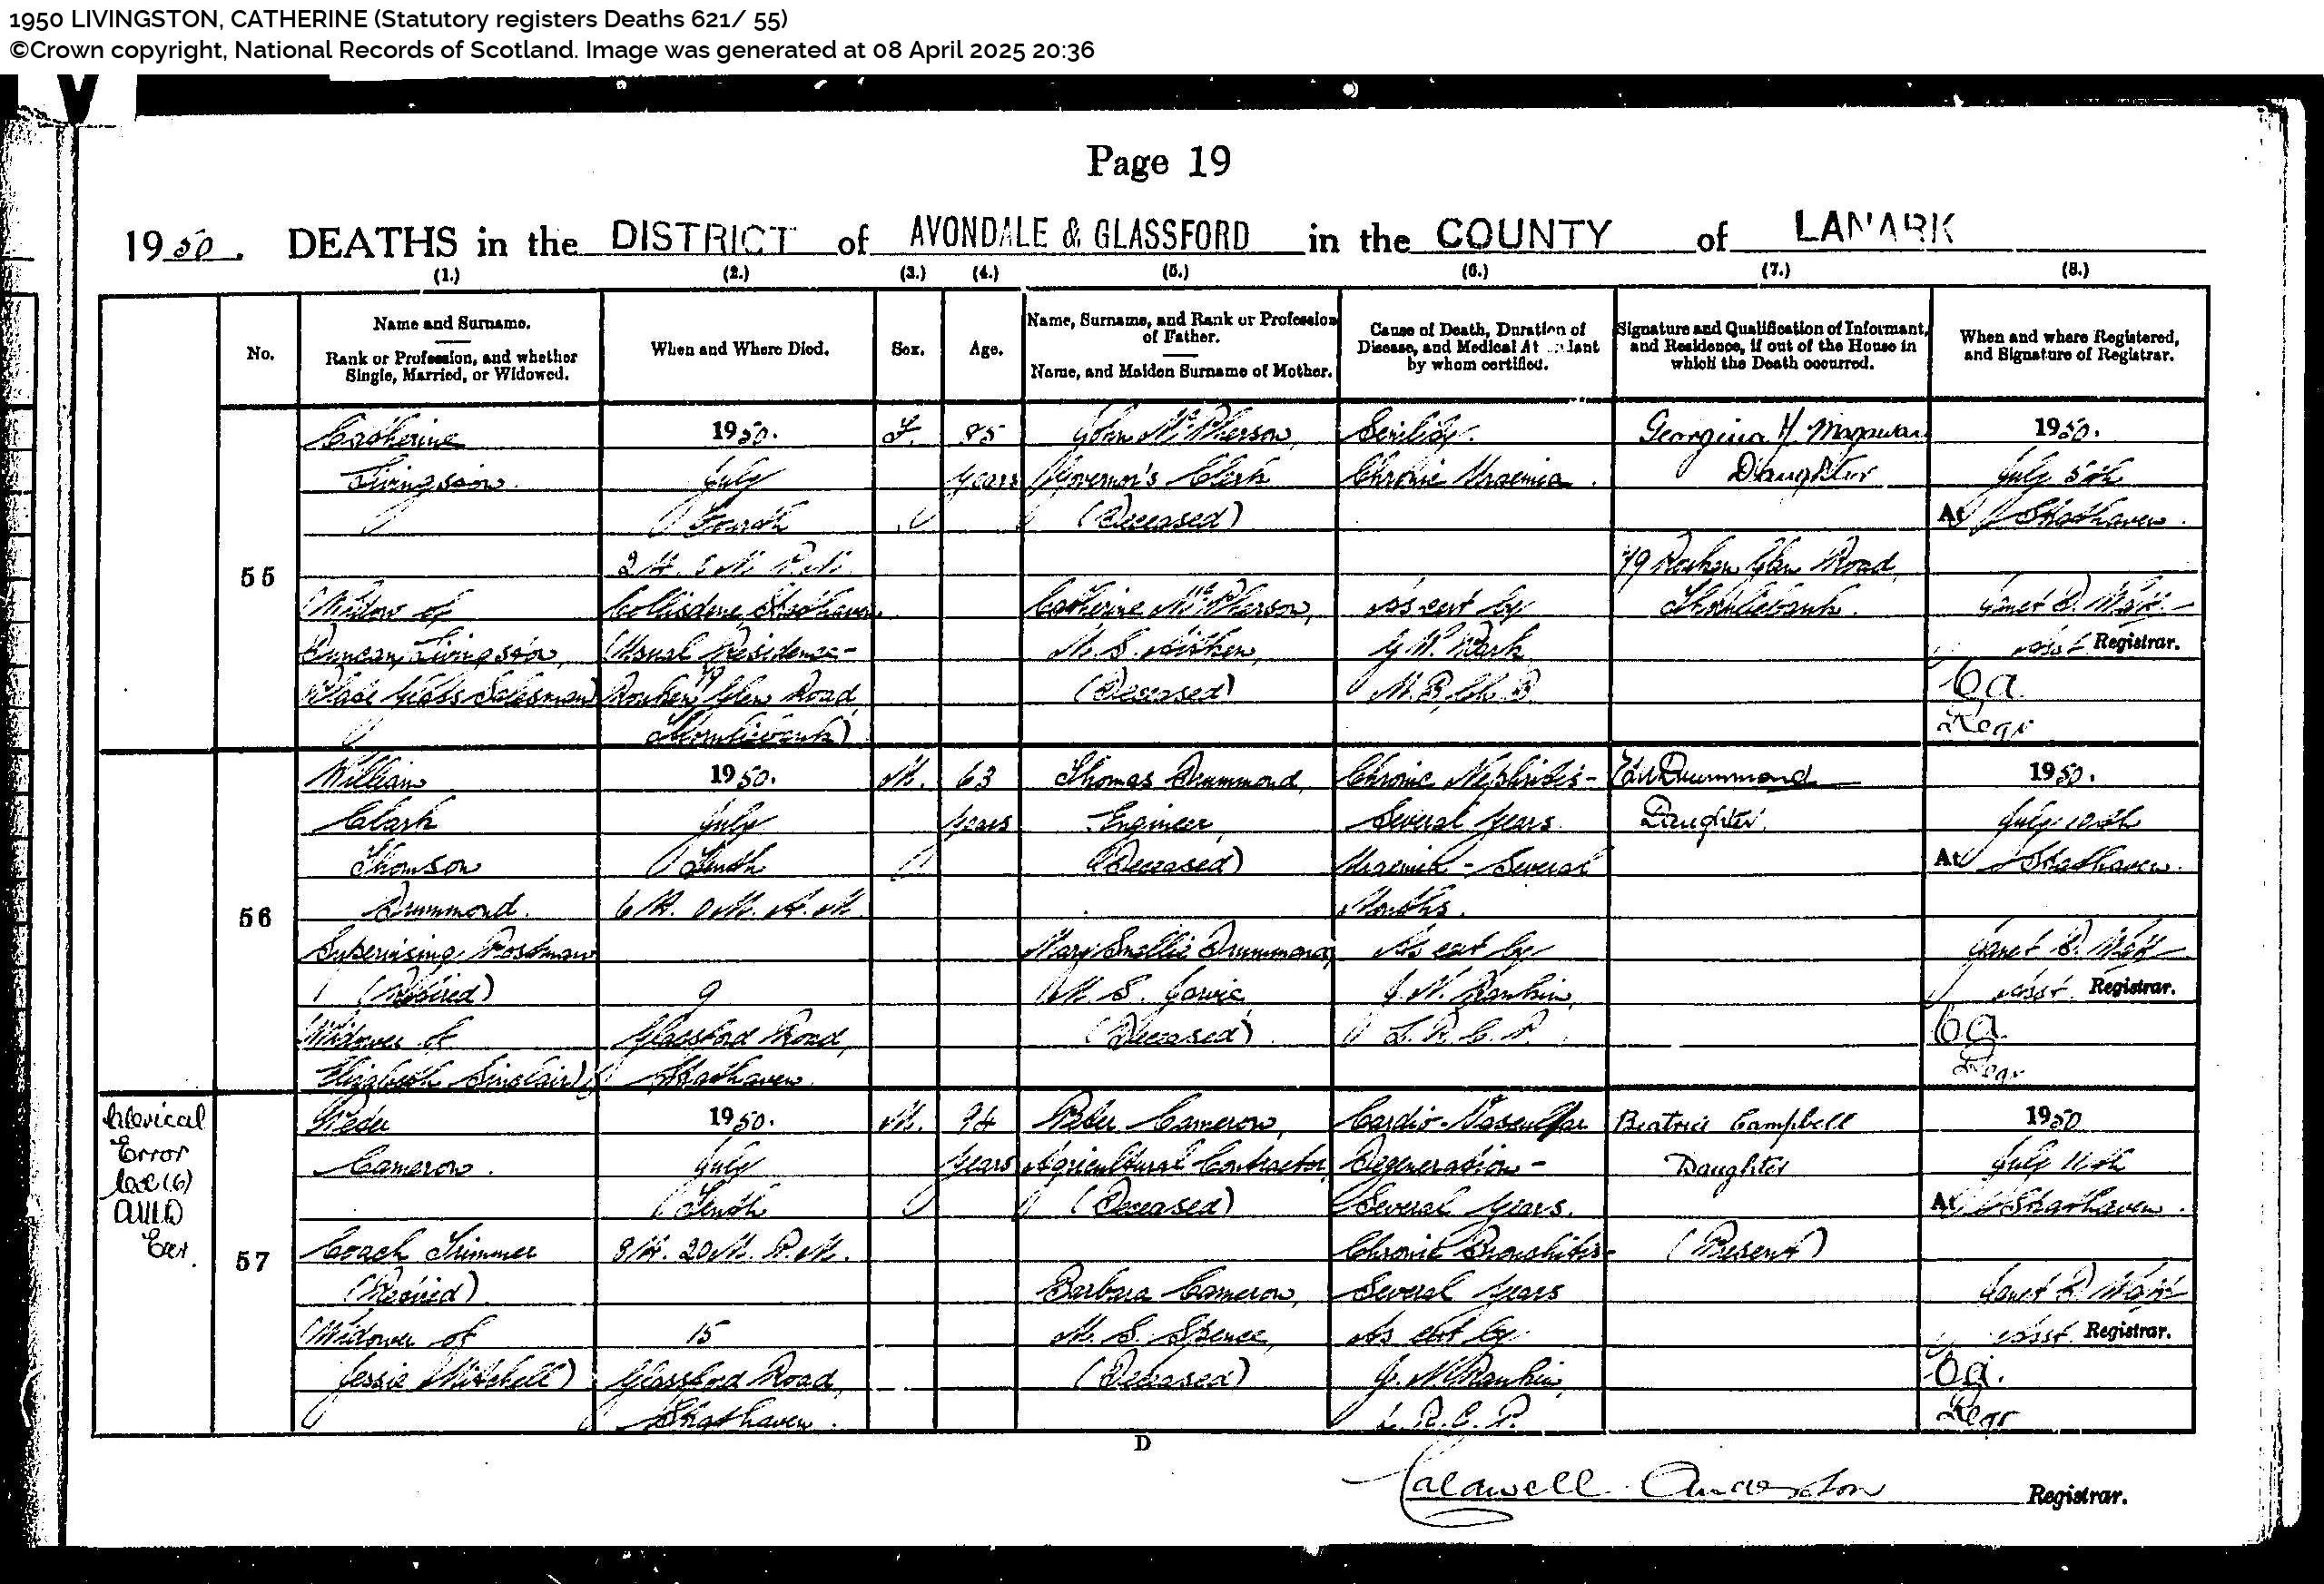 1950 LIVINGSTON, CATHERINE (Statutory registers Deaths 621/ 55)
©Crown copyright, National Records of Scotland. Image was generated at 08 April 2025 20:36
Page 19
1950. DEATHS in the DISTRICT of AVONDALE & GLASSFORD in the COUNTY of LANARK
(1.) (2.) (3.) (4.) (5.) (6.) (7.) (8.)
No.
Name and Surname.
Rank or Profession, and whether
Single, Married, or Widowed.
When and Where Died.
Sex.
Age.
Name, Surname, and Rank or Profession
of Father.
Name, and Maiden Surname of Mother.
Cause of Death, Duration of
Disease, and Medical Attendant
by whom certified.
Signature and Qualification of Informant,
and Residence, if out of the House in
which the Death occurred.
When and where Registered,
and Signature of Registrar.
55
Catherine
Livingston.
(Widow of
Duncan Livingston,
Glass Salesman)
1950.
July
Fourth
2 H. M. P.M.
Strathaven
(Usual Residence-
79
Rouken Glen Road,
Thornliebank)
F.
85
years
John McPherson,
Governor's Clerk
(Deceased)
Catherine McPherson,
M. S. Aitken,
(Deceased)
Senility.
Chronic Uraemia.
As cert by
M.B., Ch.B.
Georgina H.
Daughter
79 Rouken Glen Road,
Thornliebank.
1950.
July 5th
At Strathaven.
Janet D.
Asst Registrar.
C a
Regr
56
William
Clark
Thomson
Drummond.
Supervising Postman
(Retired)
(Widower of
Elizabeth Sinclair)
1950.
July
Tenth
6 H. 0 M. A.M.
9
Glassford Road,
Strathaven.
M.
63
years
Thomas Drummond,
Engineer,
(Deceased)
Mary Smellie Drummond,
M. S. Jarvie,
(Deceased)
Chronic Nephritis -
Several years.
Uraemia - Several
Months.
As cert by
J. N. Rankin,
L. R. C. P.
Drummond
Daughter.
1950.
July 10th
At Strathaven.
Janet D.
Asst. Registrar.
C a.
Regr
Clerical
Error
Col (6)
Exr.
57
Peter
Cameron.
Coach Trimmer
(Retired)
(Widower of
Jessie Mitchell)
1950.
July
Tenth
8 H. 20 M. P.M.
15
Glassford Road,
Strathaven.
M.
94
years
Peter Cameron,
Agricultural Contractor,
(Deceased)
Barbara Cameron,
M. S. Spence,
(Deceased)
Cardio-Vascular
Degeneration -
Several years.
Chronic Bronchitis-
Several years
As cert by
J. N. Rankin,
L. R. C. P.
Beatrice Campbell
Daughter
(Present)
1950
July 11th
At Strathaven.
Janet D.
Asst. Registrar.
C a.
Regr
D
Caldwell Anderson Registrar.